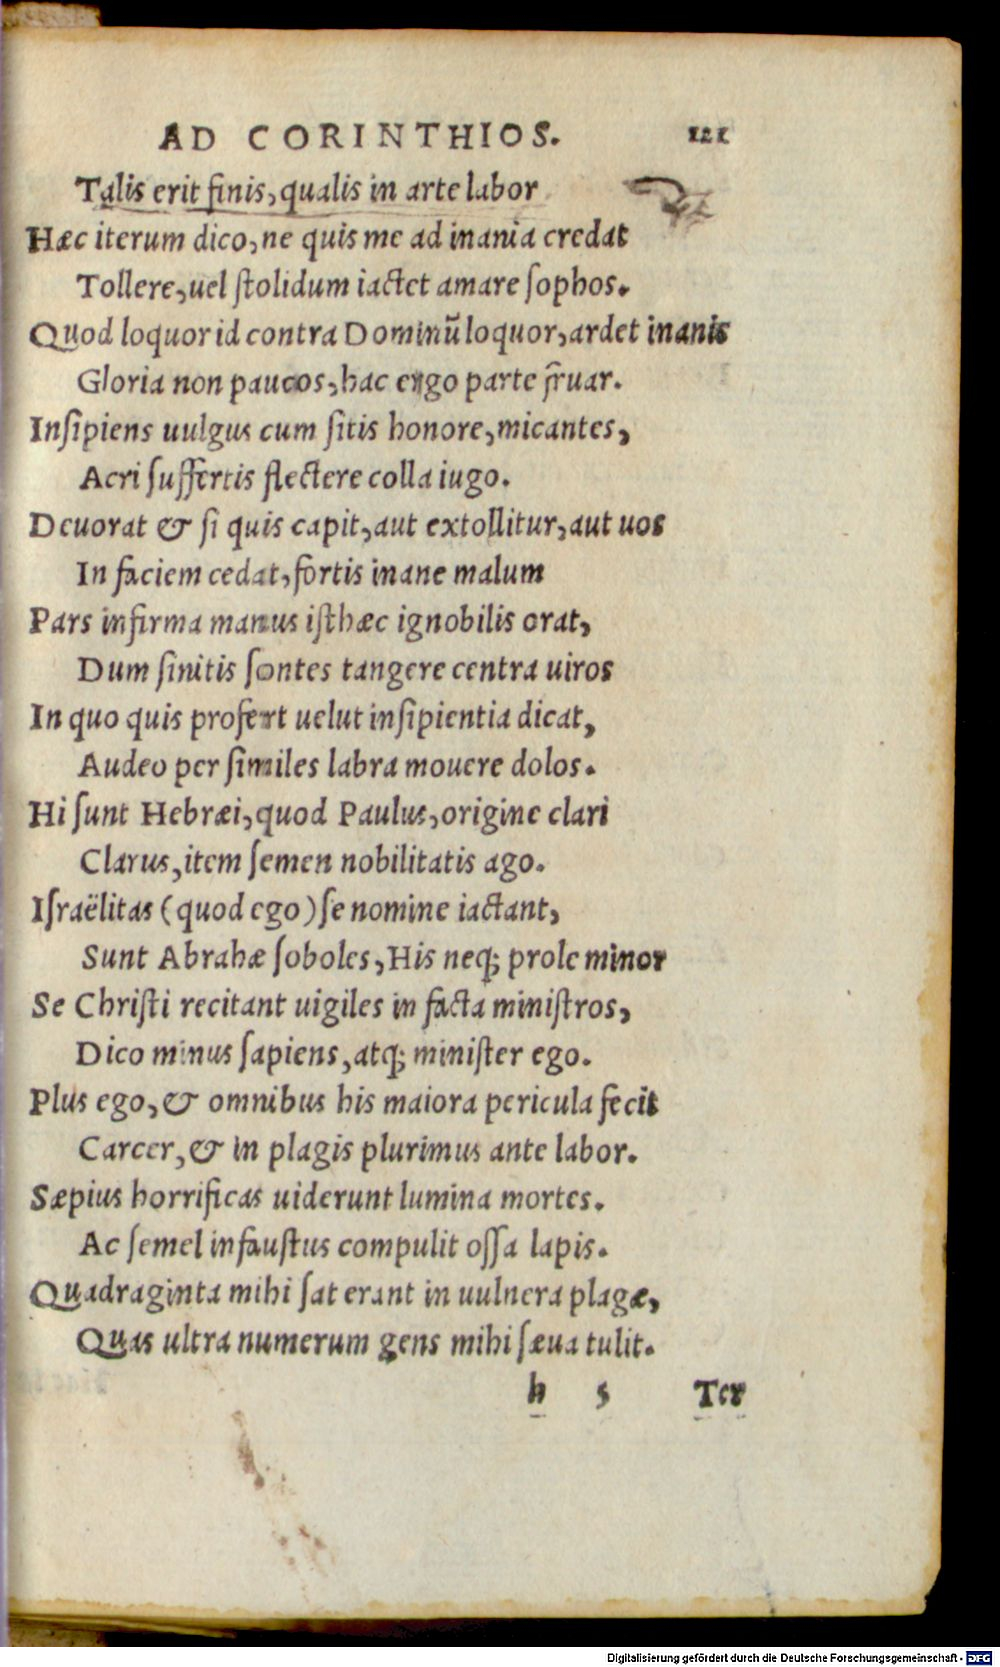 AD CORINTHIOS. 121
Talis erit finis, qualis in arte labor
Hæc iterum dico, ne quis me ad inania credat
Tollere, uel ſtolidum iactet amare ſophos.
Quod loquor id contra Dominũ loquor, ardet inanis
Gloria non paucos, hac ergo parte fruar.
Inſipiens uulgus cum ſitis honore, micantes,
Acri ſuffertis flectere colla iugo.
Deuorat & ſi quis capit, aut extollitur, aut uos
In faciem cedat, fortis inane malum
Pars infirma manus iſthæc ignobilis orat,
Dum ſinitis ſontes tangere centra uiros
In quo quis profert uelut inſipientia dicat,
Audeo per ſimiles labra mouere dolos.
Hi ſunt Hebræi, quod Paulus, origine clari
Clarus, item ſemen nobilitatis ago.
Iſraëlitas (quod ego) ſe nomine iactant,
Sunt Abrahæ ſoboles, His neq; prole minor
Se Chriſti recitant uigiles in facta miniſtros,
Dico minus ſapiens, atq; miniſter ego.
Plus ego, & omnibus his maiora pericula fecit
Carcer, & in plagis plurimus ante labor.
Sæpius horrificas uiderunt lumina mortes.
Ac ſemel infauſtus compulit oſſa lapis.
Quadraginta mihi ſat erant in uulnera plagæ,
Quas ultra numerum gens mihi ſæua tulit.
h 5 Ter
Digitalisierung gefördert durch die Deutsche Forschungsgemeinschaft - DFG